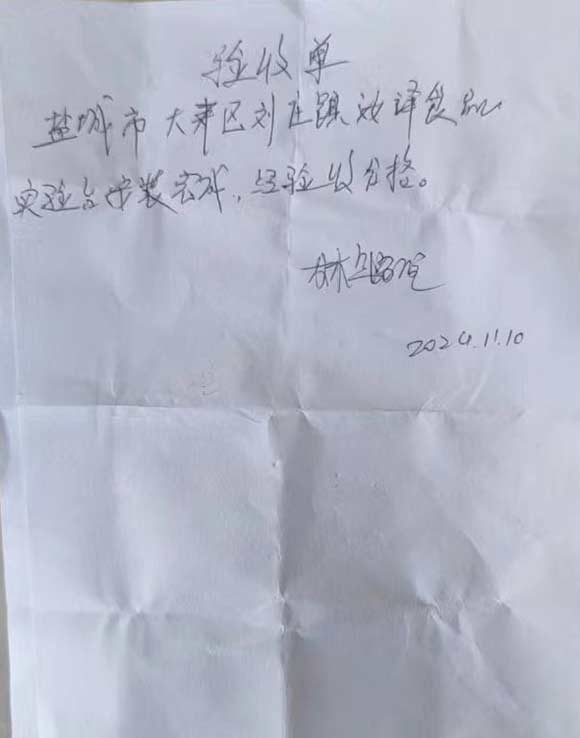 验收单
盐城市大丰区刘庄镇 译食品
实验台安装完成，经验收合格。
林
2024.11.10